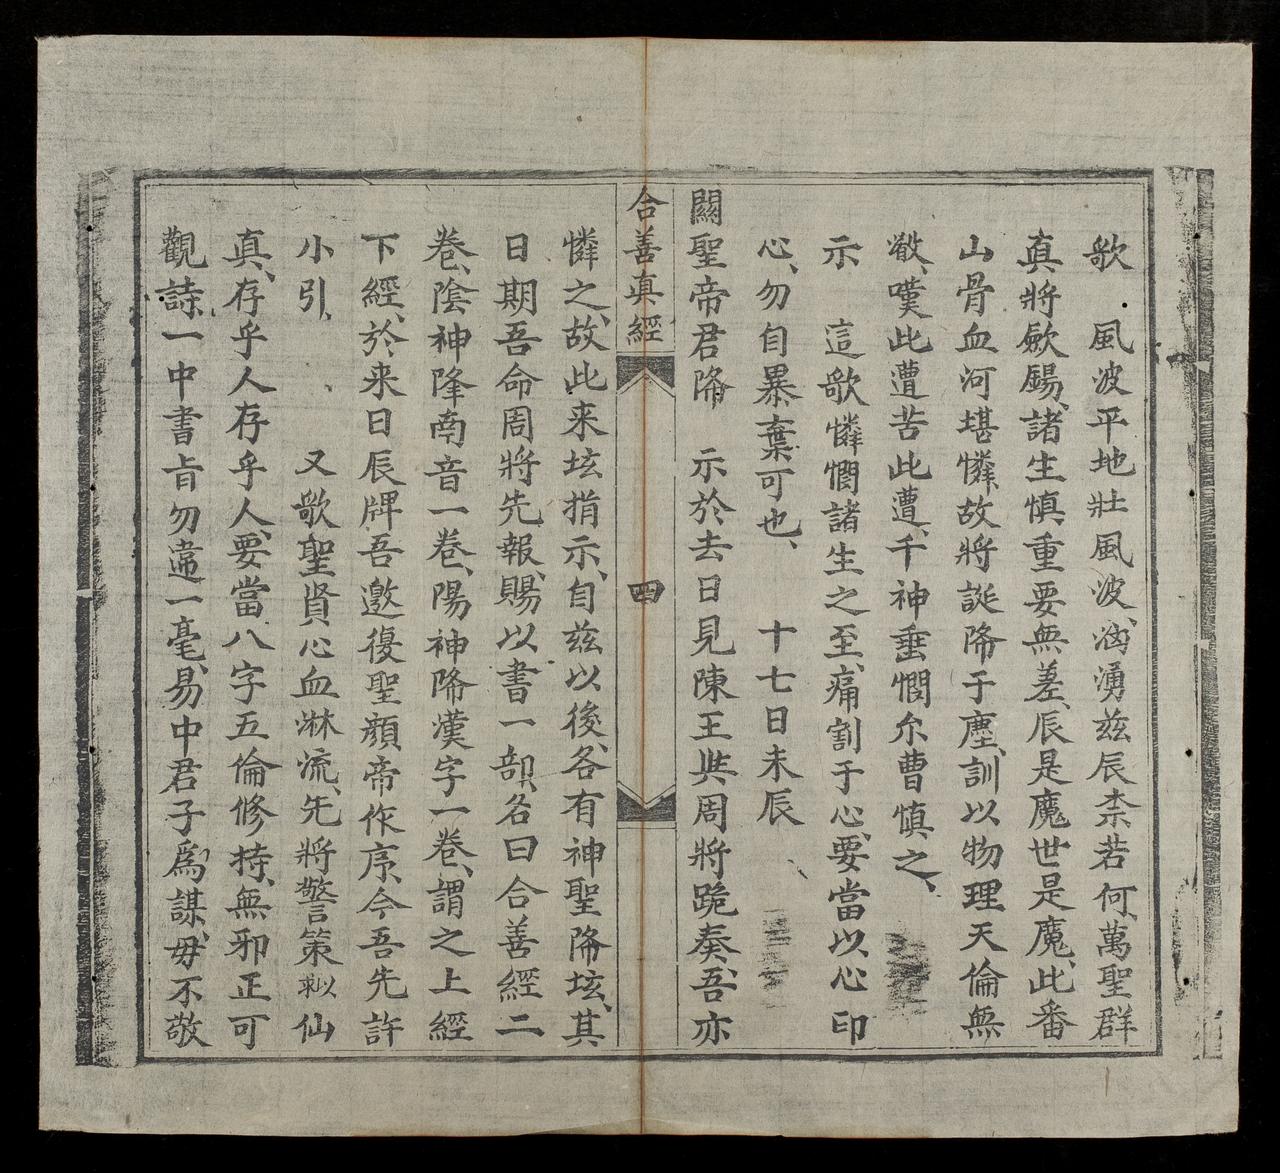 歌　風波平地壯風波、洶湧兹辰柰若何、萬聖群
真、將歔錫、諸生慎、重要無差、辰是魔世是魔、此番
山骨血河堪憐、故將誕降于塵、訓以物理天倫無
斁、嘆此遭苦此遭、千神垂憫尔曹慎之、
示　這歌憐憫諸生之至、痛割于心、要當以心印
心、勿自暴棄可也、　十七日未辰
關聖帝君降　示於去日見陳王與周將跪奏、吾亦
合善真經　四
憐之、故此来垓指示、自兹以後、各有神聖降垓、其
日期吾命周將先報、賜以書一部、名曰合善經二
卷、陰神降南音一卷、陽神降漢字一卷、謂之上經
下經、於来日辰牌吾邀復聖顔帝作序、今吾先許
小引、　又歌聖賢心血淋流、先將警策 仙
真、存乎人存乎人、要當八字五倫修持、無邪正可
觀詩、一中書旨勿違一毫、易中君子爲謀、毋不敬